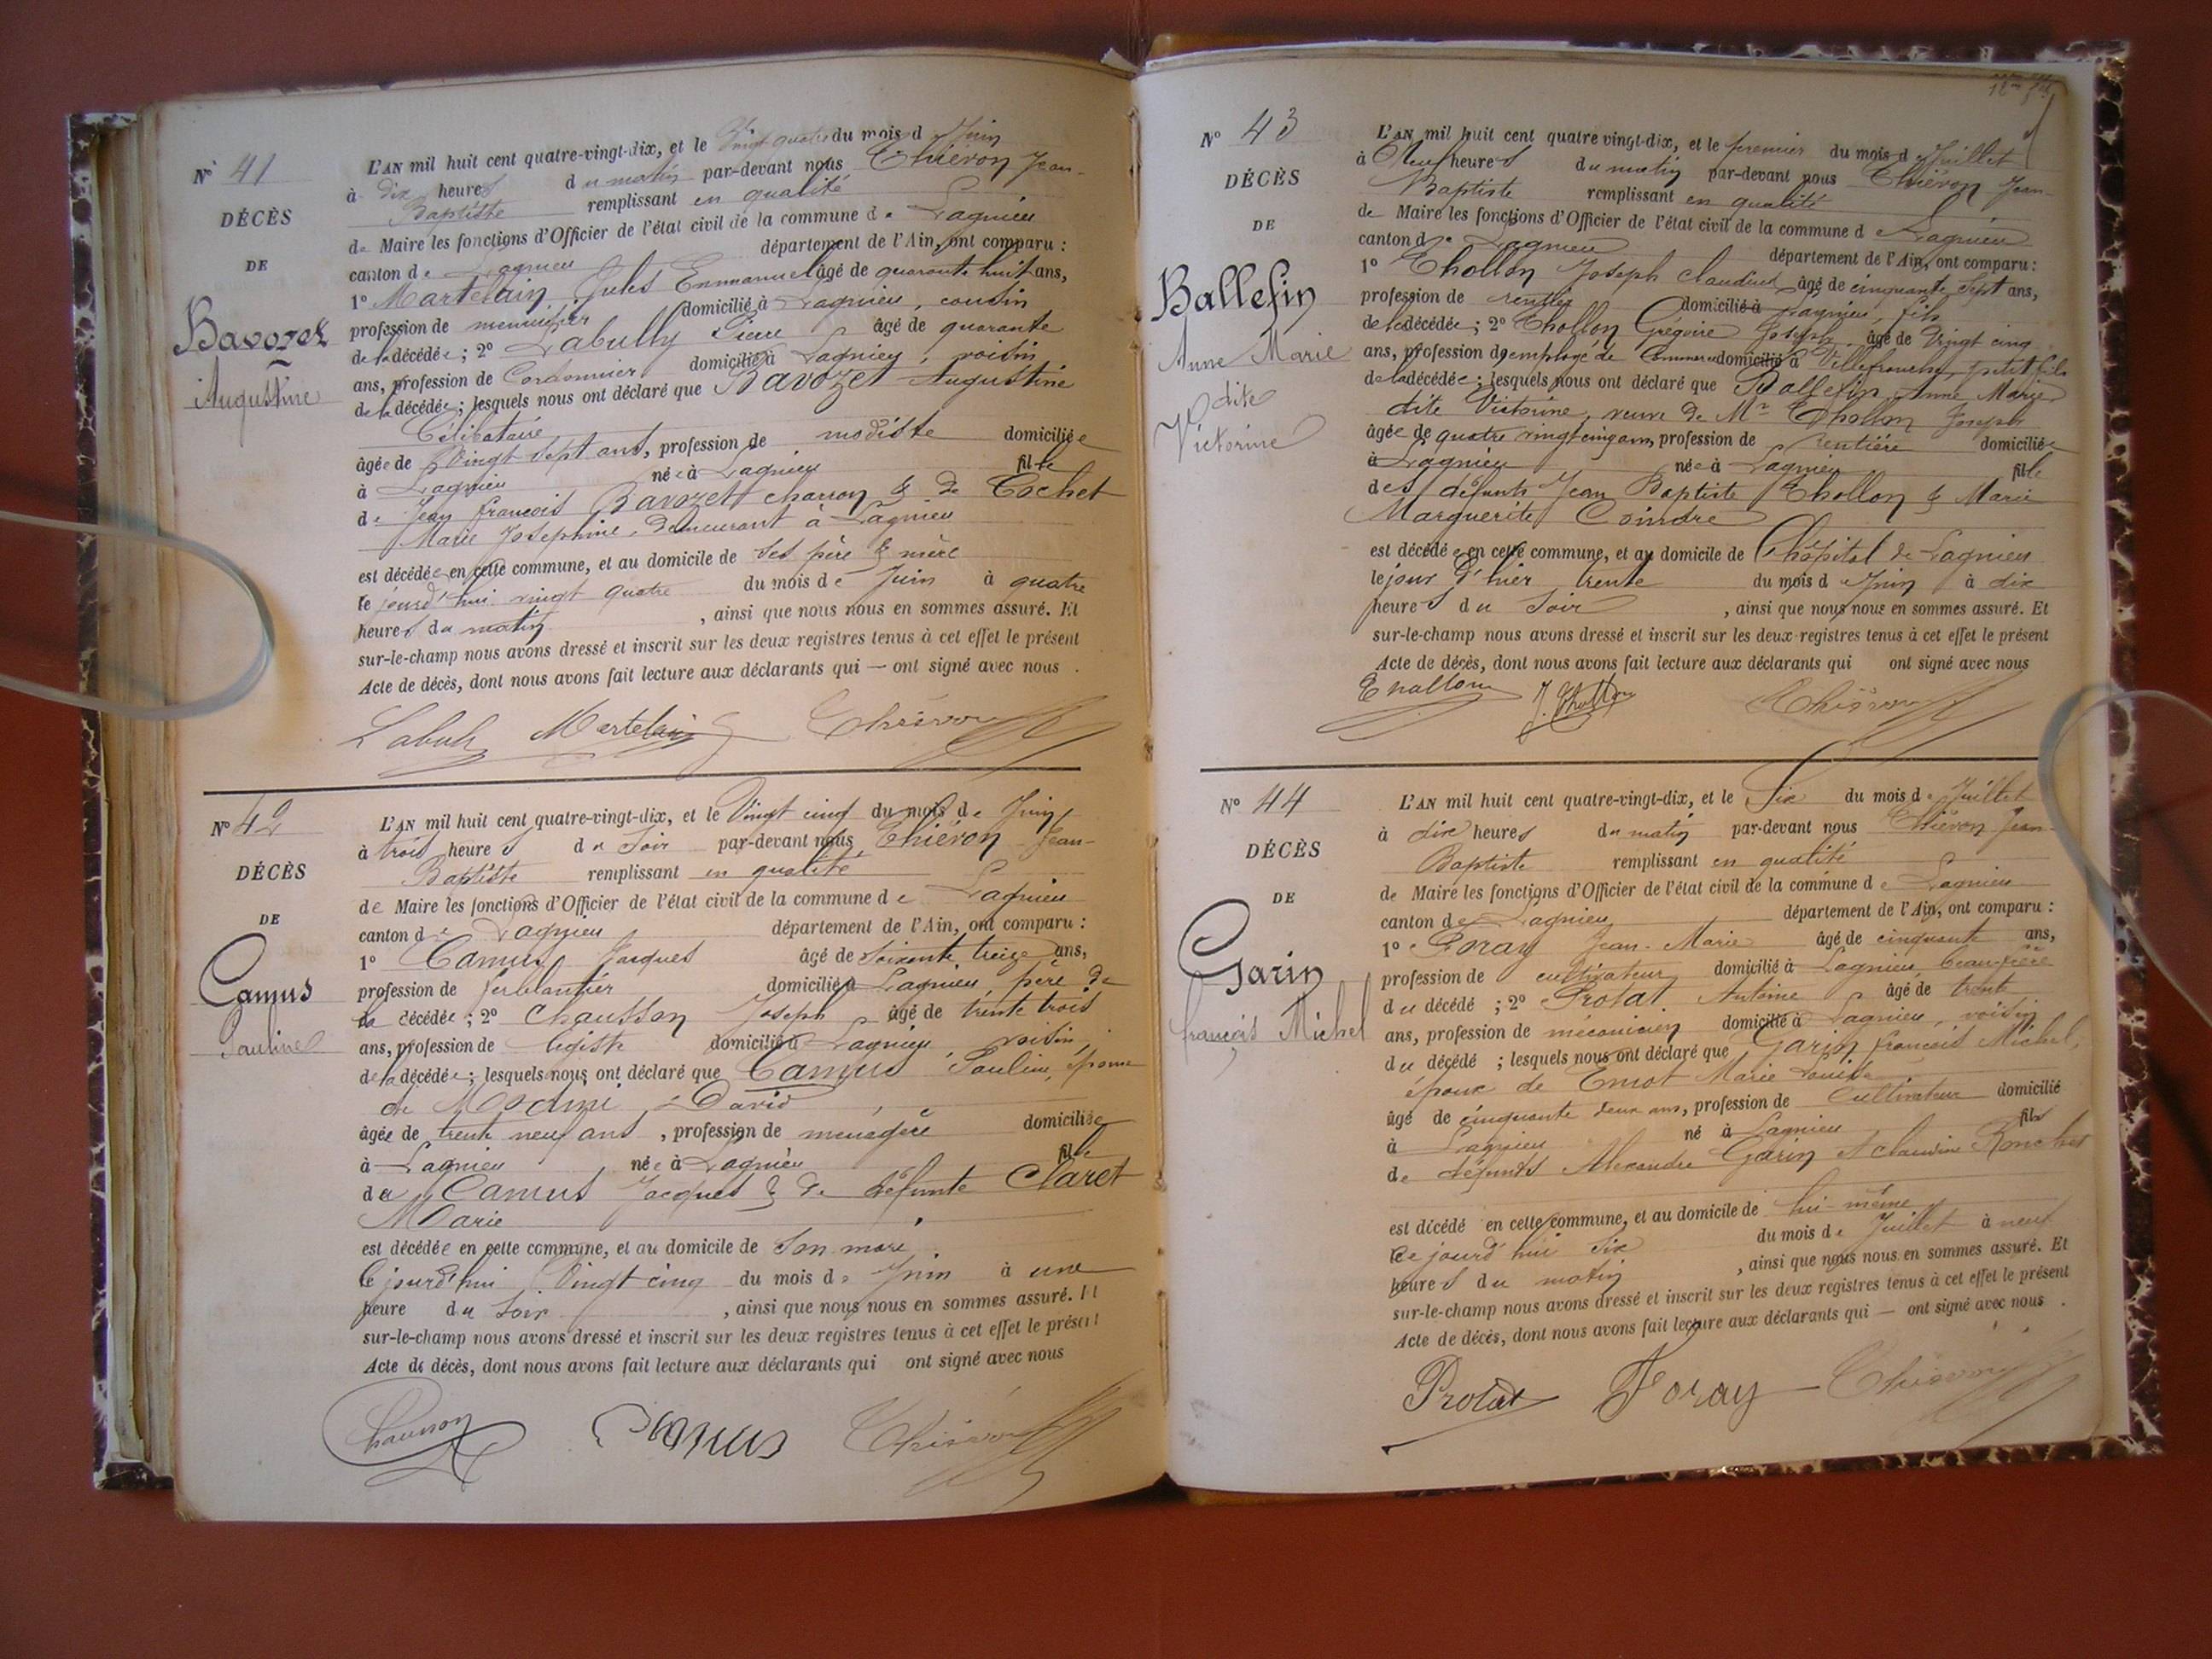 N° 41
DÉCÈS
DE
Bavozet
Augustine
L'AN mil huit cent quatre-vingt-dix, et le Vingt quatre du mois d Juin
à dix heures du matin par-devant nous Chiévron Jean-
Baptiste remplissant en qualité
de Maire les fonctions d'Officier de l'état civil de la commune de Lagnieu
canton de Lagnieu département de l'Ain, ont comparu :
1° Martelain Jules Emmanuel âgé de quarante huit ans,
profession de menuisier domicilié à Lagnieu, cousin
de la décédée ; 2° Labully Pierre âgé de quarante
ans, profession de Cordonnier domicilié à Lagnieu, voisin
de la décédée ; lesquels nous ont déclaré que Bavozet Augustine
Célibataire
âgée de Vingt sept ans, profession de modiste domiciliée
à Lagnieu née à Lagnieu fille
de Jean françois Bavozet charron & de Cochet
Marie Josephine, demeurant à Lagnieu
est décédée en cette commune, et au domicile de ses père & mère
le jourd'hui vingt quatre du mois de Juin à quatre
heures du matin , ainsi que nous nous en sommes assuré. Et
sur-le-champ nous avons dressé et inscrit sur les deux registres tenus à cet effet le présent
Acte de décès, dont nous avons fait lecture aux déclarants qui — ont signé avec nous .
Martelain
N° 42
DÉCÈS
DE
Camus
Pauline
L'AN mil huit cent quatre-vingt-dix, et le Vingt cinq du mois de Juin
à trois heures du Soir par-devant nous Chiévron Jean-
Baptiste remplissant en qualité
de Maire les fonctions d'Officier de l'état civil de la commune de Lagnieu
canton de Lagnieu département de l'Ain, ont comparu :
1° Camus Jacques âgé de Soixante treize ans,
profession de ferblantier domicilié à Lagnieu, père de
la décédée ; 2° Chausson Joseph âgé de trente trois
ans, profession de domicilié à Lagnieu voisin,
de la décédée ; lesquels nous ont déclaré que Camus Pauline, épouse
de David
âgée de trente neuf ans , profession de ménagère domiciliée
à Lagnieu née à Lagnieu fille
de Camus Jacques & de défunte Claret
Marie
est décédée en cette commune, et au domicile de Son mari
le jourd'hui Vingt cinq du mois de Juin à une
heure du Soir , ainsi que nous nous en sommes assuré. Et
sur-le-champ nous avons dressé et inscrit sur les deux registres tenus à cet effet le présent
Acte de décès, dont nous avons fait lecture aux déclarants qui ont signé avec nous
Chausson Camus
N° 43
DÉCÈS
DE
Ballefin
Anne Marie
dite
Victorine
L'AN mil huit cent quatre vingt-dix, et le premier du mois d Juillet
à Neuf heures du matin par-devant nous Chiévron Jean-
Baptiste remplissant en qualité
de Maire les fonctions d'Officier de l'état civil de la commune de Lagnieu
canton de Lagnieu département de l'Ain, ont comparu :
1° Chollon Joseph Claudius âgé de cinquante sept ans,
profession de rentier domicilié à Lagnieu, fils
de la décédée ; 2° Chollon Grégoire Joseph âgé de Vingt cinq
ans, profession d'employé de Commerce domicilié à Villefranche, petit fils
de la décédée ; lesquels nous ont déclaré que Ballefin Anne Marie
dite Victorine, veuve de Mr Chollon Joseph
âgée de quatre vingt cinq ans, profession de rentière domiciliée
à Lagnieu née à Lagnieu fille
des défunts Jean Baptiste Chollon & Marie
Marguerite Coindre
est décédée en cette commune, et au domicile de l'hôpital de Lagnieu
le jour d'hier trente du mois d Juin à dix
heures du Soir , ainsi que nous nous en sommes assuré. Et
sur-le-champ nous avons dressé et inscrit sur les deux registres tenus à cet effet le présent
Acte de décès, dont nous avons fait lecture aux déclarants qui ont signé avec nous
N° 44
DÉCÈS
DE
Garin
françois Michel
L'AN mil huit cent quatre-vingt-dix, et le Six du mois de Juillet
à dix heures du matin par-devant nous Chiévron Jean-
Baptiste remplissant en qualité
de Maire les fonctions d'Officier de l'état civil de la commune de Lagnieu
canton de Lagnieu département de l'Ain, ont comparu :
1° Foray Jean-Marie âgé de cinquante ans,
profession de cultivateur domicilié à Lagnieu beau-frère
du décédé ; 2° Prolat Antoine âgé de trente
ans, profession de mécanicien domicilié à Lagnieu, voisin
du décédé ; lesquels nous ont déclaré que Garin françois Michel,
époux de Marie Louise
âgé de cinquante deux ans, profession de Cultivateur domicilié
à Lagnieu né à Lagnieu fils
de défunts Alexandre Garin et claudine
est décédé en cette commune, et au domicile de lui-même
le jourd'hui Six du mois de Juillet à neuf
heures du matin , ainsi que nous nous en sommes assuré. Et
sur-le-champ nous avons dressé et inscrit sur les deux registres tenus à cet effet le présent
Acte de décès, dont nous avons fait lecture aux déclarants qui — ont signé avec nous .
Prolat Foray